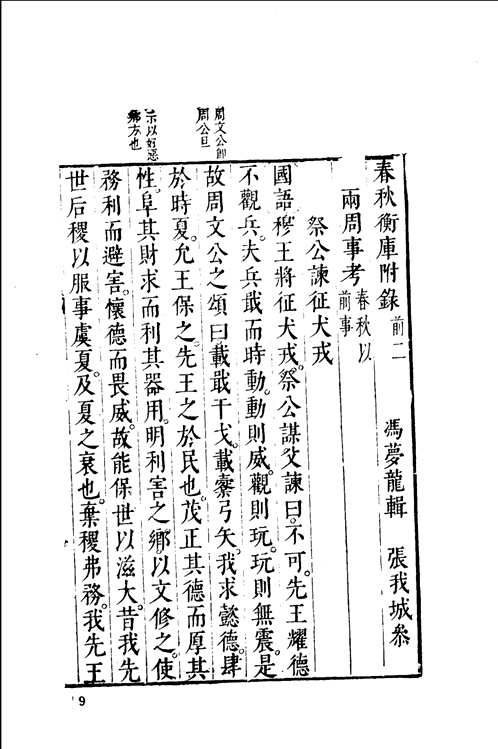 春秋衡庫附錄 前二 馮夢龍輯 張我城參
兩周事考 春秋以前事
祭公諫征犬戎
國語穆王將征犬戎。祭公謀父諫曰。不可。先王耀德
不觀兵。夫兵戢而時動。動則威。觀則玩。玩則無震。是
故周文公之頌曰載戢干戈。載櫜弓矢。我求懿德。肆
於時夏。允王保之。先王之於民也。茂正其德而厚其
性。阜其財求而利其器用。明利害之鄉。以文修之。使
務利而避害。懷德而畏威。故能保世以滋大。昔我先
世后稷以服事虞夏。及夏之衰也。棄稷弗務。我先王
周文公即
周公旦
示以好惡
鄉方也
9